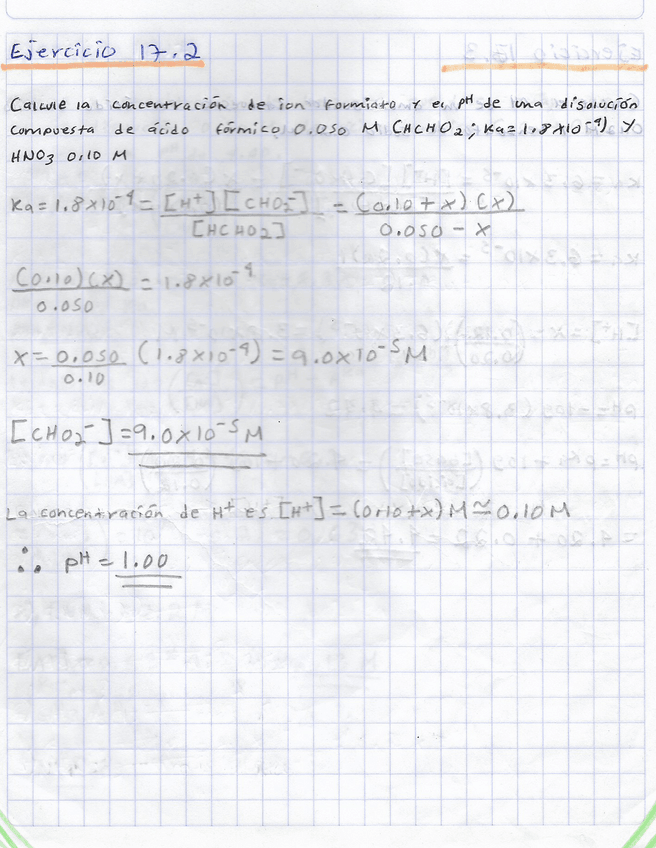 Ejercicio 17.2
Calcule la concentración de ion formiato y el pH de una disolución
compuesta de ácido fórmico 0.050 M (HCHO2; Ka=1.8x10⁻⁴) y
HNO3 0.10 M
Ka = 1.8x10⁻⁴ = [H⁺][CHO₂⁻] / [HCHO2] = (0.10 + x)(x) / 0.050 - x
(0.10)(x) / 0.050 = 1.8x10⁻⁴
x = 0.050 / 0.10 (1.8x10⁻⁴) = 9.0x10⁻⁵ M
[CHO₂⁻] = 9.0x10⁻⁵ M
La concentración de H⁺ es [H⁺] = (0.10 + x) M ≅ 0.10 M
∴ pH = 1.00